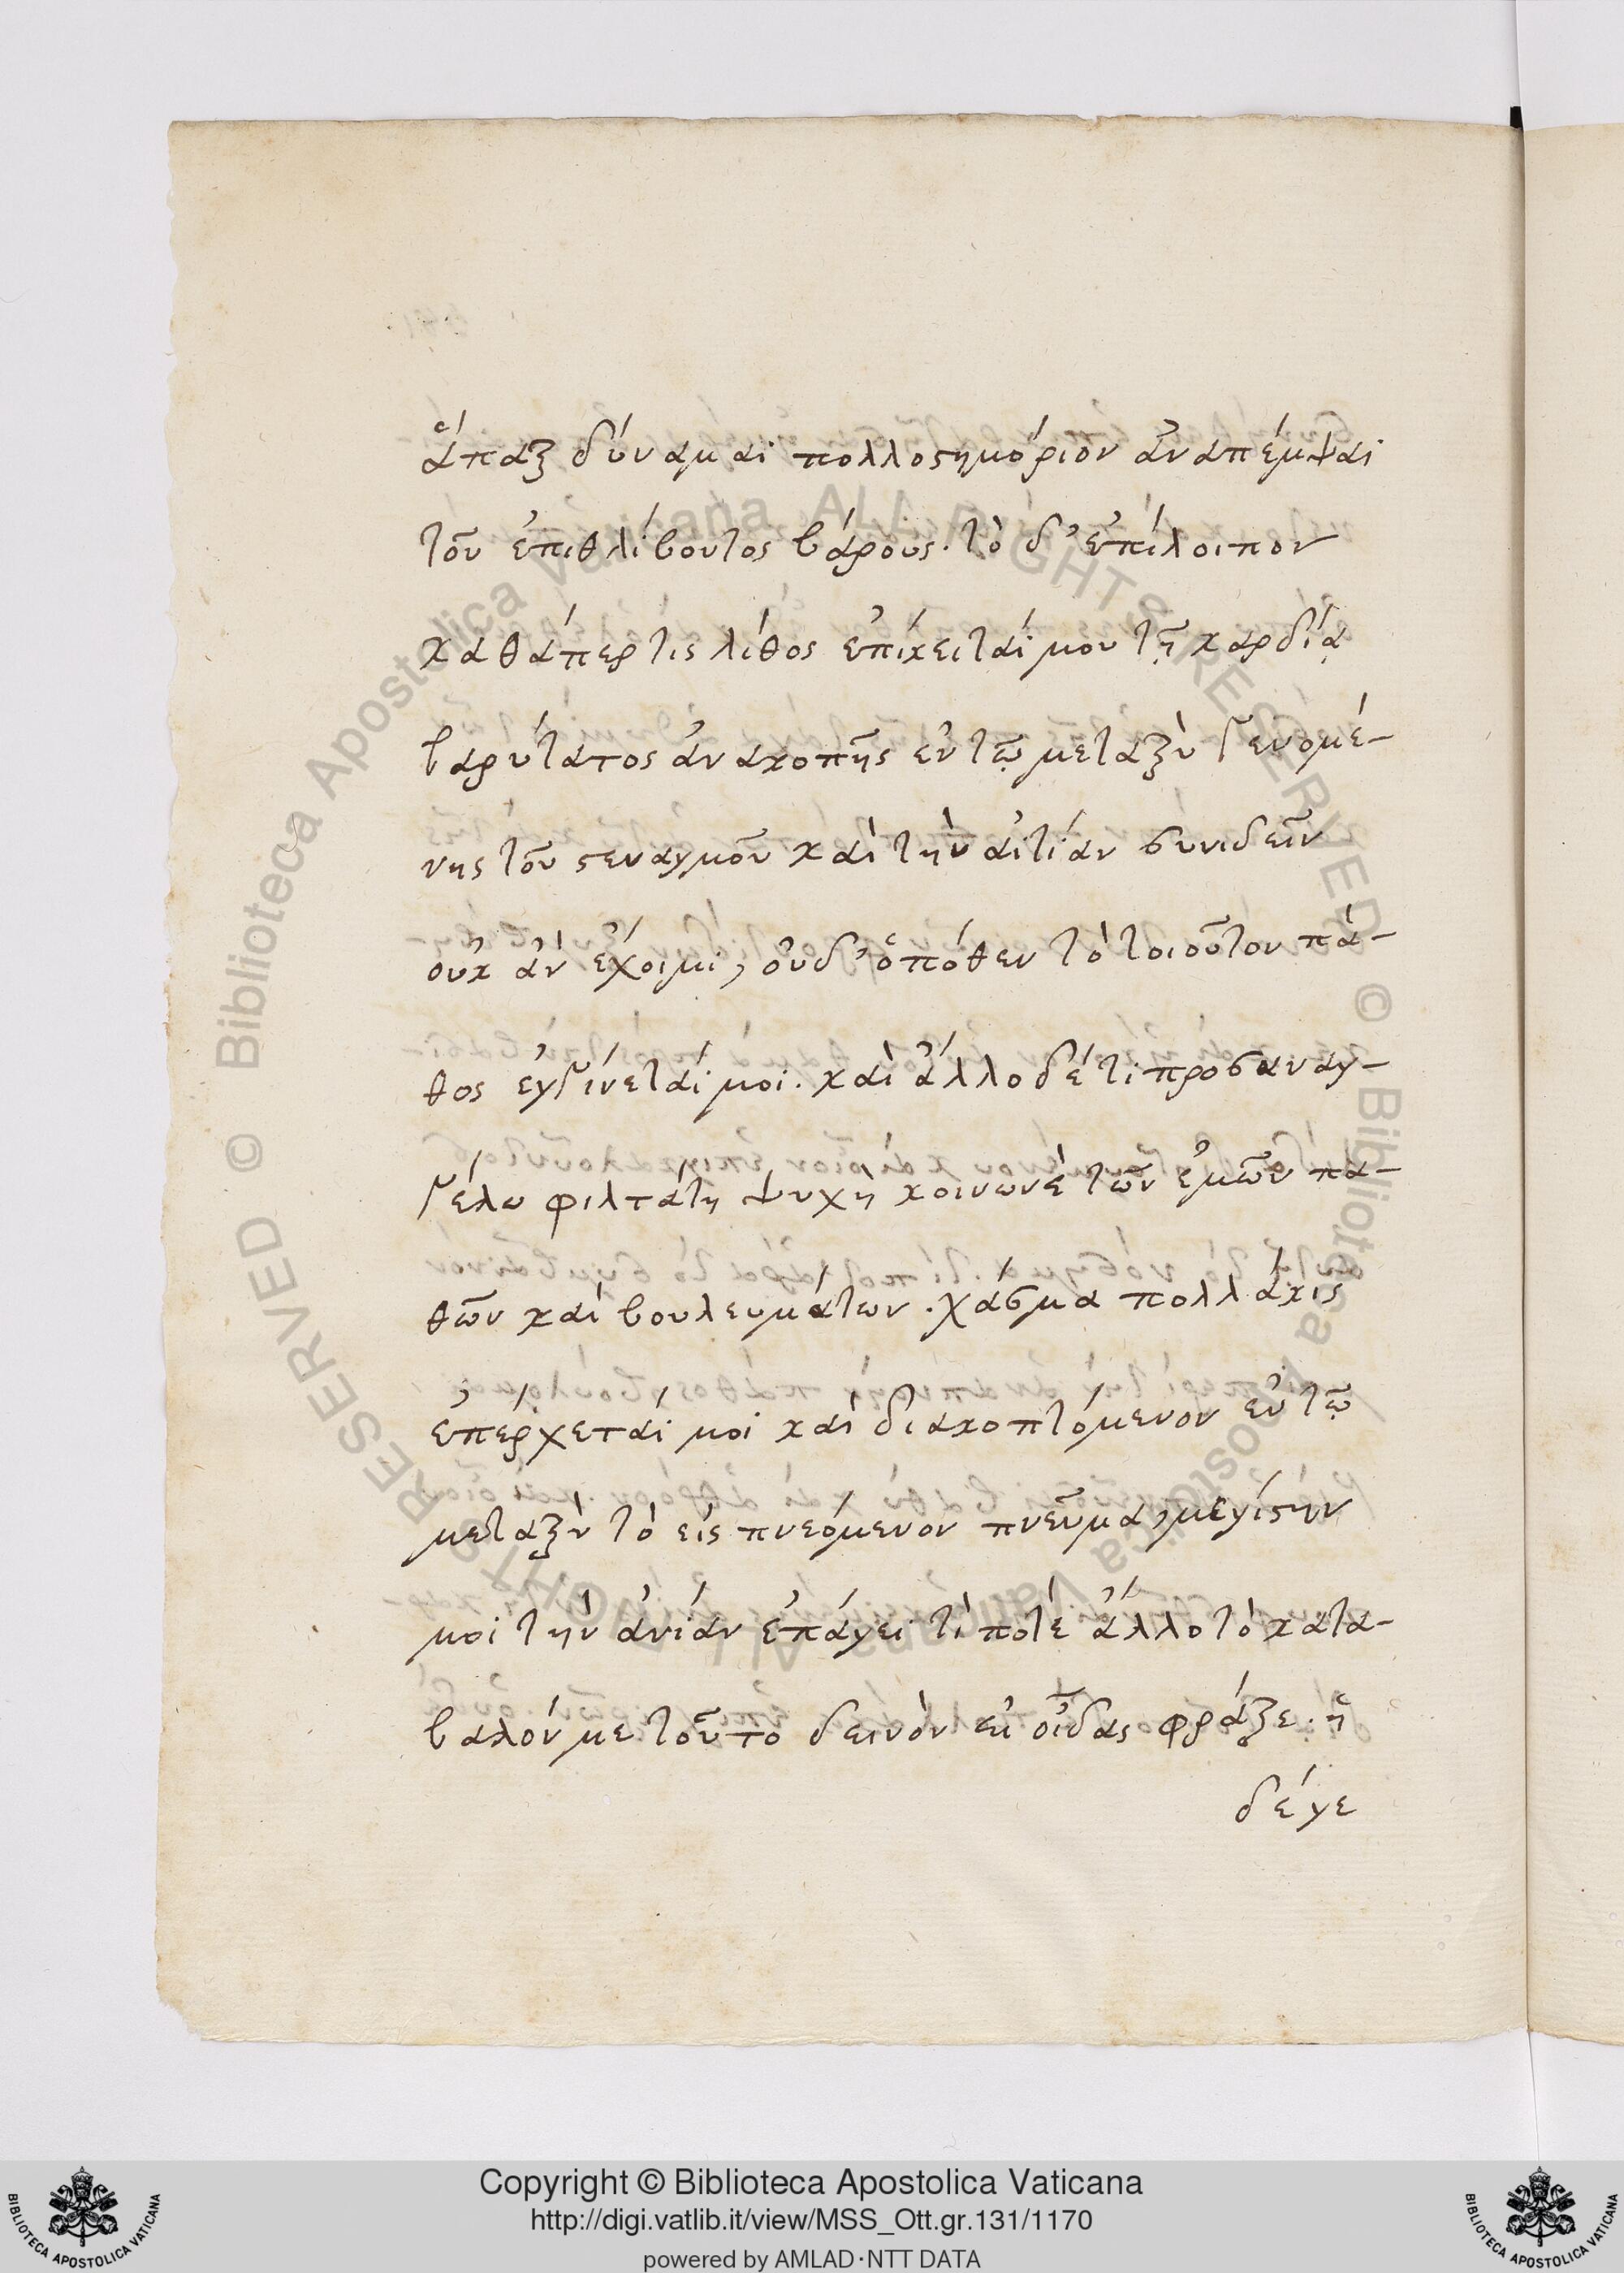 ἅπαξ δύναμαι πολλοστημόριον ἀναπέμψαι
τοῦ ἐπιθλίβοντος βάρους· τὸ δ᾽ ἐπίλοιπον
καθάπερ τις λίθος ἐπίκειταί μου τῇ καρδίᾳ
βαρύτατος ἀνακοπῆς ἐν τῷ μεταξὺ γενομέ-
νης τοῦ στεναγμοῦ καὶ τὴν αἰτίαν συνιδεῖν
οὐκ ἂν ἔχοιμι, οὐδ᾽ ὁπόθεν τὸ τοιοῦτον πά-
θος ἐγγίνεταί μοι. καὶ ἄλλο δέ τι προσαναγ-
γέλω φιλτάτη ψυχὴ κοινωνέ τῶν ἐμῶν πα-
θῶν καὶ βουλευμάτων. χάσμα πολλάκις
ἐπέρχεταί μοι καὶ διακοπτόμενον ἐν τῷ
μεταξὺ τὸ εἰς πνεόμενον πνεῦμα, μεγίστην
μοι τὴν ἀνίαν ἐπάγει τί ποτέ ἄλλο τὸ κατα-
βαλόν με τοῦτο δεινὸν εἰ οἶδας φράζε· ἥ
δέ γε
Copyright © Biblioteca Apostolica Vaticana
http://digi.vatlib.it/view/MSS_Ott.gr.131/1170
powered by AMLAD·NTT DATA
BIBLIOTECA APOSTOLICA VATICANA
BIBLIOTECA APOSTOLICA VATICANA
© Biblioteca Apostolica Vaticana ALL RIGHTS RESERVED
© Biblioteca Apostolica Vaticana ALL RIGHTS RESERVED